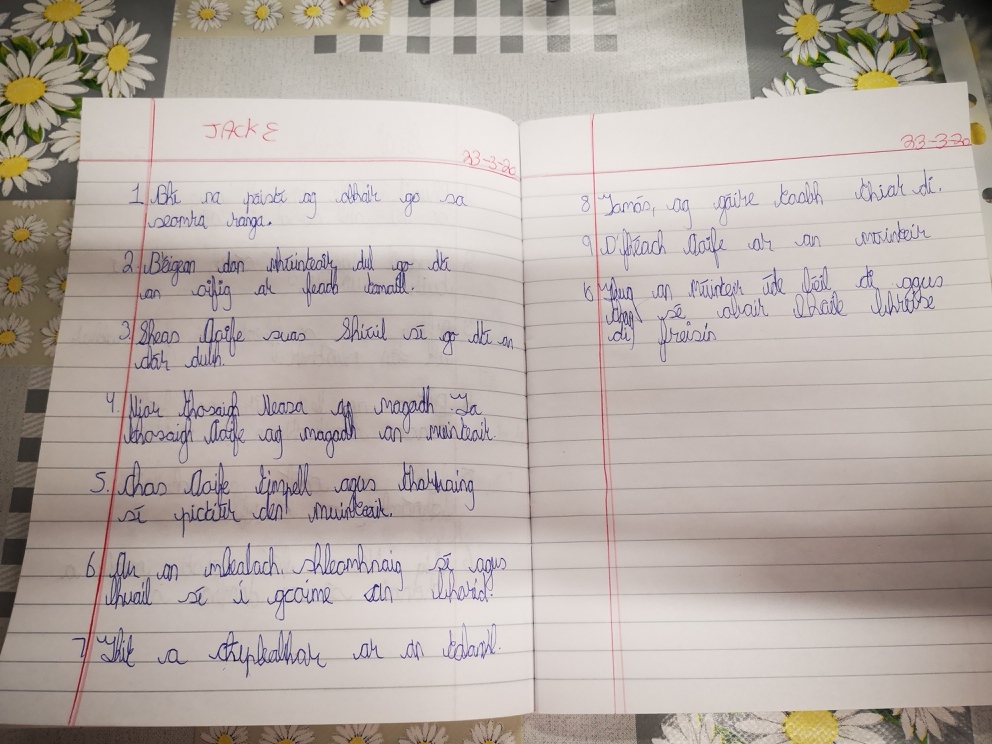 JACK E
23-3-20
1 Bhí na páistí ag obair go sa
seomra ranga.
2. B'éigean don mhúinteoir dul go dtí
an oifig ar feadh tamaill.
3. Sheas Aoife suas Shiúil sí go dtí an
clár dubh.
4. Níor thosaigh Neasa ag magadh. Ta
thosaigh Aoife ag magadh an muinteoir.
5. Chas Aoife timpell agus tharraing
sí pictiúr den muinteoir.
6 Ar an mbealach, shleamhnaig sí agus
bhuail sí i gcoinne an bhord.
7 Thit a ar an talamh.
23-3-20
8 Tomás, ag gáire taobh thiar di.
9 D'fhéach Aoife ar an múinteir
Thug an múinteir íde béil di agus
thug sé obair bhaile bhreise
di freisin